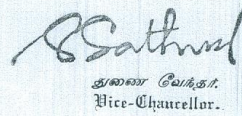 துணை வேந்தர்.
Vice-Chancellor.